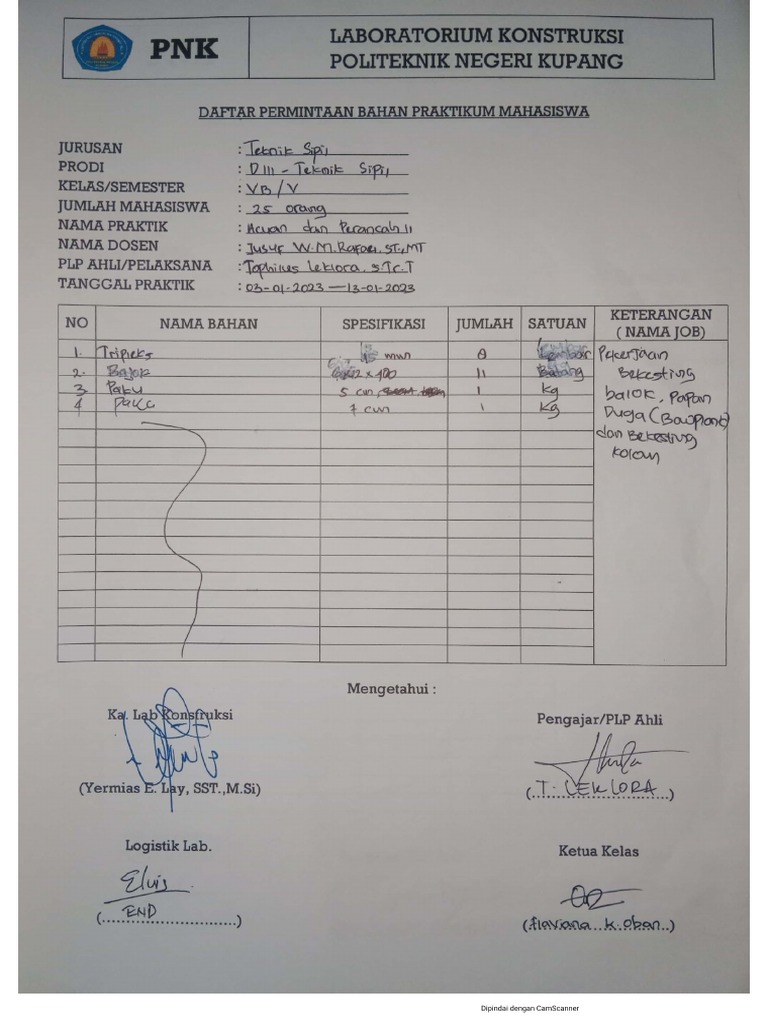 PNK
LABORATORIUM KONSTRUKSI
POLITEKNIK NEGERI KUPANG
DAFTAR PERMINTAAN BAHAN PRAKTIKUM MAHASISWA
JURUSAN : Teknik Sipil
PRODI : DIII - Teknik Sipil
KELAS/SEMESTER : VB / V
JUMLAH MAHASISWA : 25 orang
NAMA PRAKTIK : Acuan dan Perancah II
NAMA DOSEN : Jusuf W.M. ST., MT
PLP AHLI/PELAKSANA : Leklora. S.Tr.T
TANGGAL PRAKTIK : 03-01-2023 — 13-01-2023
NO NAMA BAHAN SPESIFIKASI JUMLAH SATUAN KETERANGAN ( NAMA JOB)
1. Tripleks mm Lembar Pekerjaan
2. Balok 11 Batang Bekesting
3. Paku 5 cm 1 kg balok, Papan
4 Paku 7 cm 1 Kg Duga (Bowplank)
dan Bekesting
Kolom
Mengetahui :
Ka. Lab Konstruksi
Pengajar/PLP Ahli
(Yermias E. Lay, SST.,M.Si)
(T. LEKLORA)
Logistik Lab.
Ketua Kelas
Elvis
(END)
(flaviana k. oban)
Dipindai dengan CamScanner